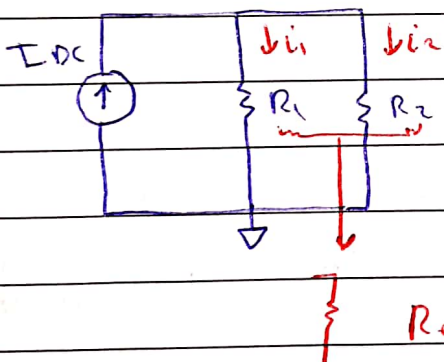 I DC
i₁
i₂
R₁
R₂